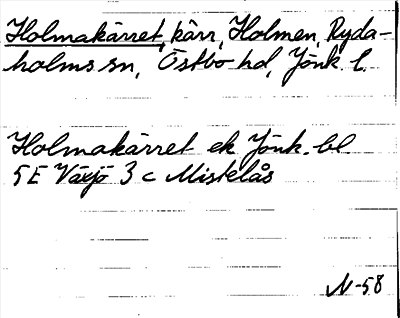 Holmakärret, kärr, Holmen, Ryda-
holms sn, Östbo hd, Jönk. l.
Holmakärret ek Jönk. bl
5E Växjö 3 c Mistelås
N-58